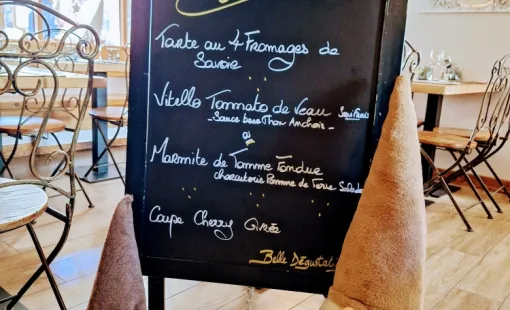 Tarte au 4 Fromages de
Savoie
Vitello Tonnato de Veau
- Sauce base Thon Anchois -
ou
Marmite de Tomme Fondue
charcuterie Pomme de Terre Salade
Coupe Cherry Givrée
Belle Dégustat